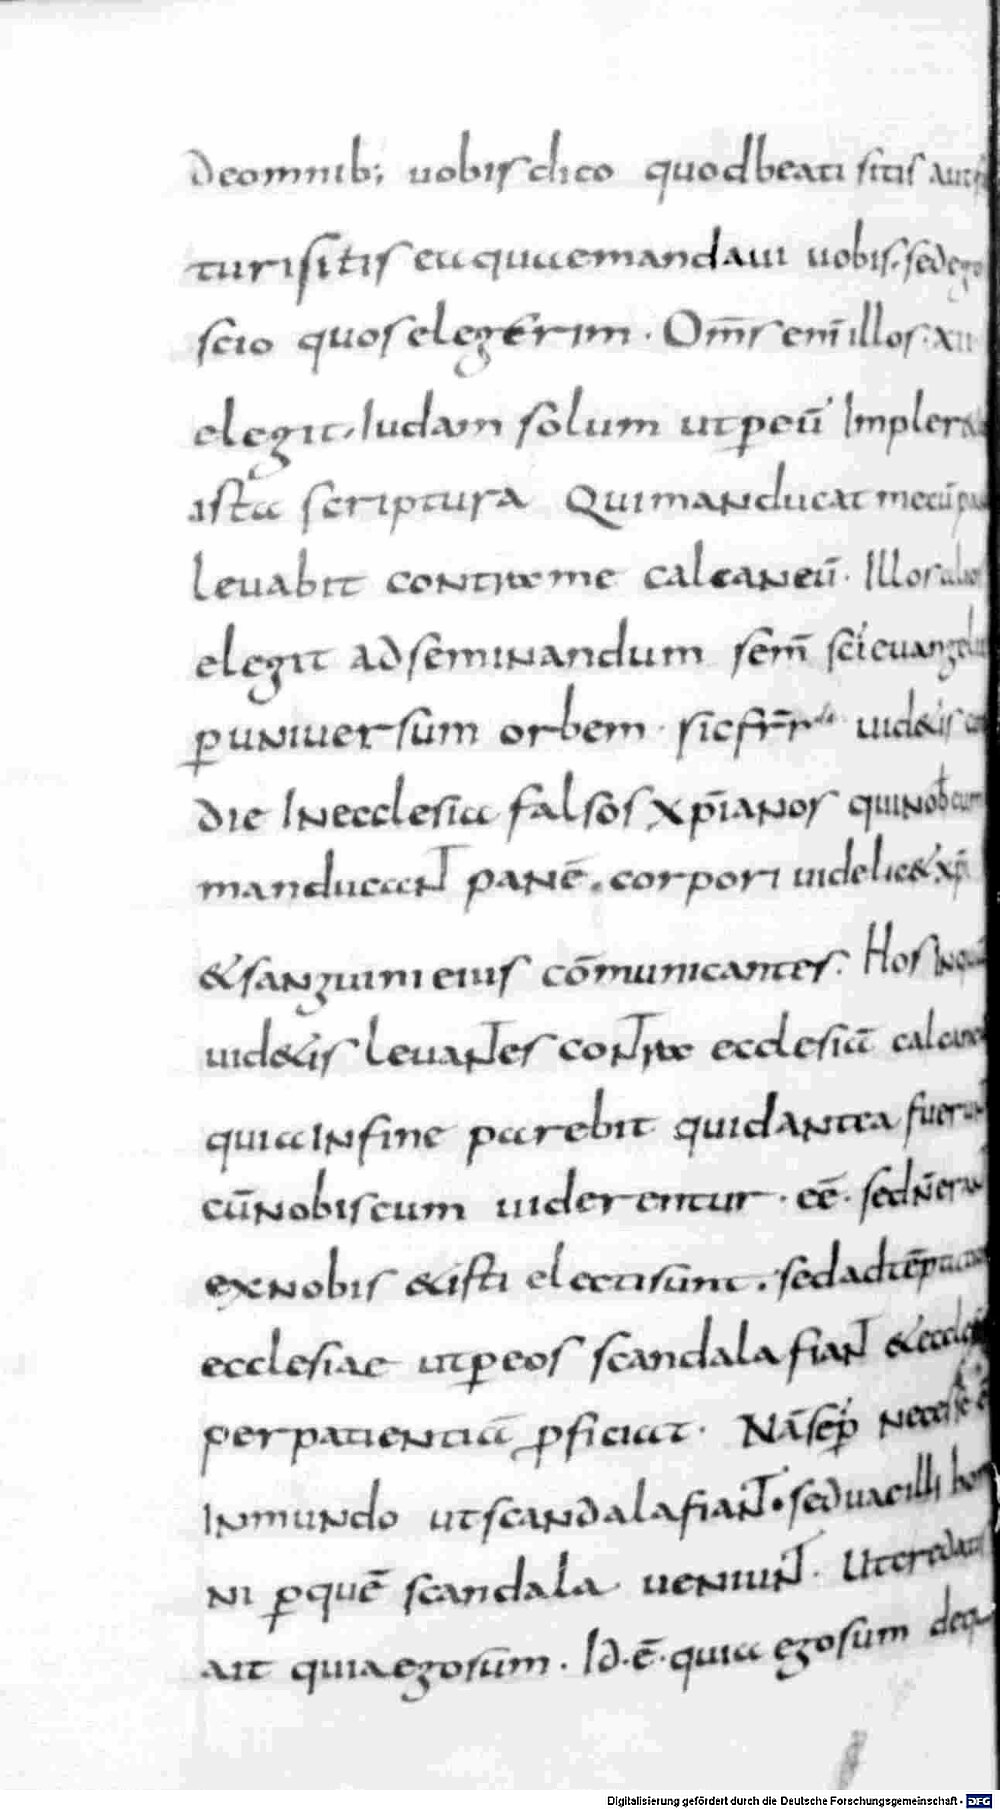 deomnib; uobis dico quod beati sitis aut
turi sitis ea quae mandaui uobis. sed ego
scio quos elegerim. Om̄s eni̅ illos. xii
elegit. Iudam solum ut ꝑ eū
ista scriptura Qui manducat mecū
leuabit contra me calcaneū. Illos
elegit ad seminandum sem̄ sc̄i
ꝑ uniuersum orbem. sic fr̄r uidetis
die In ecclesia falsos xp̄ianos qui nob cum
manducant panē. corpori uidelic& xp̄i
& sanguini eius cōmunicantes. Hos
uid&is leuantes contra ecclesiā
quia in fine parebit quid antea
cū nobiscum uiderentur. eē. sed n̄
ex nobis & isti electi sunt. sed ad
ecclesiae ut ꝑ eos scandala fiant &
per patientiā ꝓficiat. Nā semꝑ necesse ē
In mundo ut scandala fiant. sed uae illi
ni ꝑ quē scandala ueniunt. Ut credatis
ait quia ego sum. Id. ē. quia ego sum de
Digitalisierung gefördert durch die Deutsche Forschungsgemeinschaft - DFG